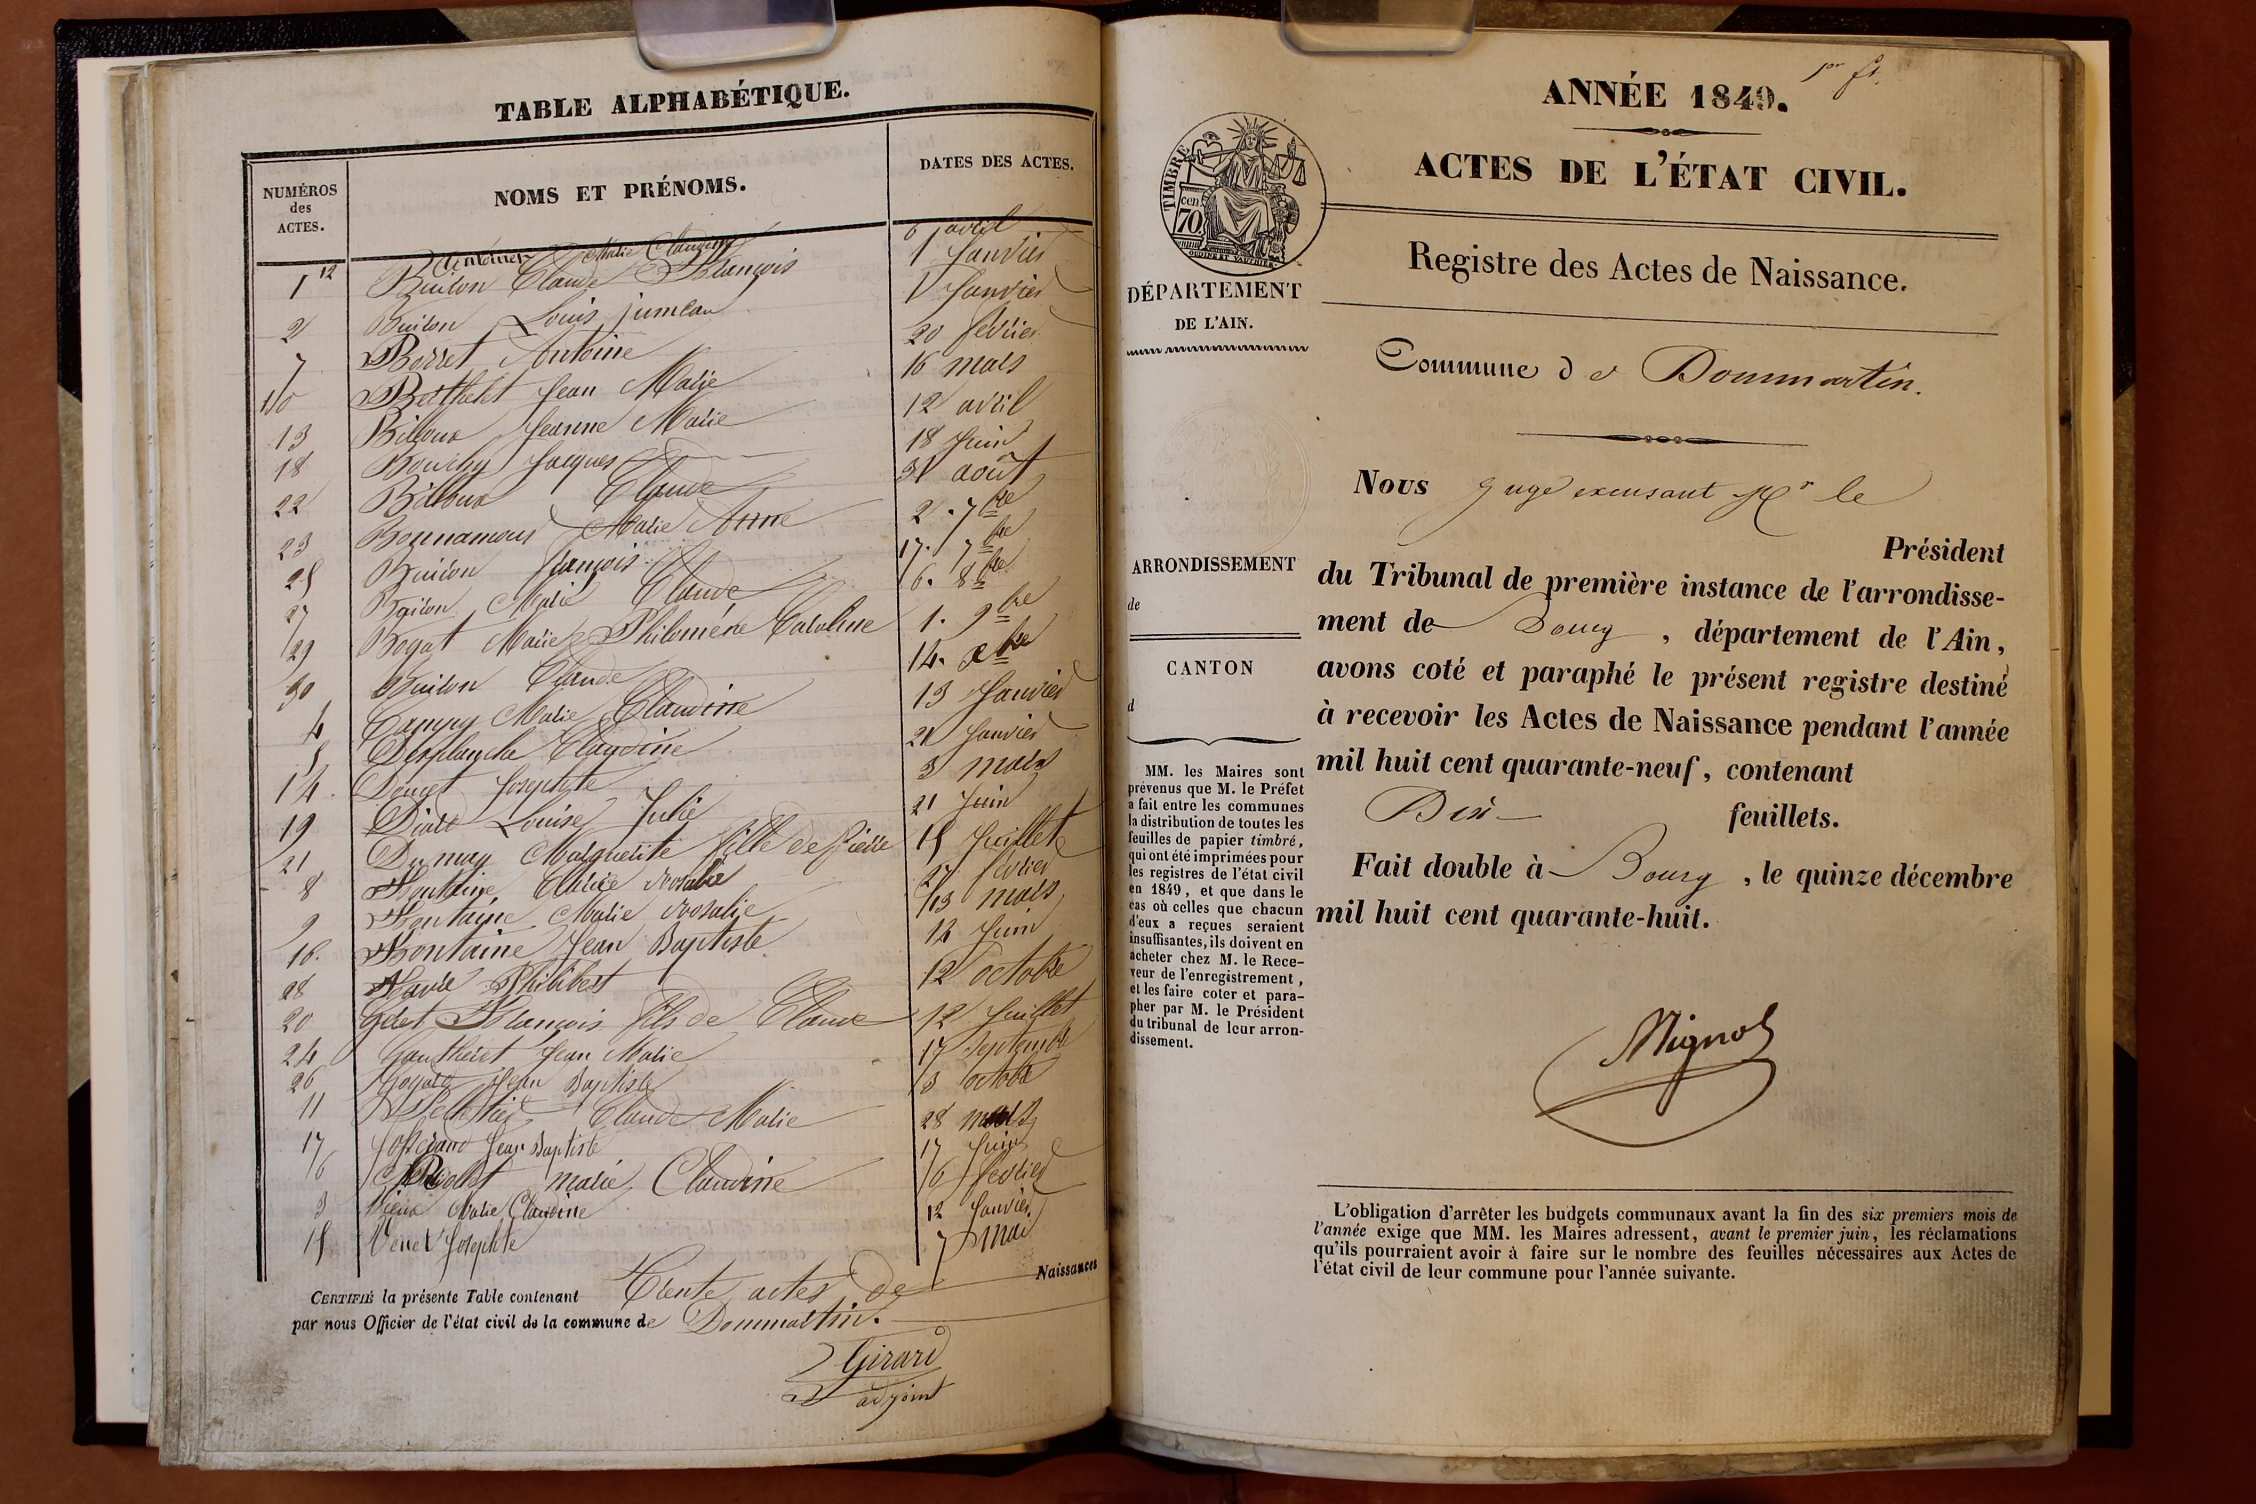 TABLE ALPHABÉTIQUE.
NUMÉROS
des
ACTES.
NOMS ET PRÉNOMS.
DATES DES ACTES.
12 Marie Claudine 6 avril
1 Buiron Claude François 1 Janvier
2 Buiron Louis jumeau 1 Janvier
7 Borret Antoine 20 février
10 Berthelet Jean Marie 16 mars
13 Billoux Jeanne Marie 12 avril
18 Bouchy Jacques 18 Juin
22 Billoux Claude 31 août
23 Marie Anne 2. 7bre
25 Buiron François 17. 7bre
27 Buiron Marie Claude 6. 8bre
29 Bogat Marie Philomène Caroline 1. 9bre
30 Buiron Claude 14. xbre
4 Marie Claudine 13 Janvier
5 Desplanche Claudine 21 Janvier
14 Douget Josephte 3 mars
19 Louise Julie 21 Juin
21 Dumay Marguerite fille de Pierre 15 Juillet
8 Fontaine Rosalie 27 février
9 Fontaine Marie Rosalie 13 mars
16. Fontaine Jean Baptiste 14 Juin
28 Favre Philibert 12 octobre
20 Gelet François fils de Claude 12 Juillet
24 Gautheret Jean Marie 17 Septembre
26 Goyat Jean Baptiste 3 octobre
11 Claude Marie 28 mars
17 Josserand Jean Baptiste 17 Juin
6 marie Claudine 6 fevrier
3 Vieux Marie Claudine 12 Janvier
15 Venet Josephte 7 mai
CERTIFIÉ la présente Table contenant Trente actes de Naissances
par nous Officier de l'état civil de la commune de Dommartin.
Girard
adjoint
ANNÉE 1849.
1er ft.
ACTES DE L'ÉTAT CIVIL.
Registre des Actes de Naissance.
TIMBRE
70 cen
DÉPARTEMENT
DE L'AIN.
Commune de Dommartin.
Nous Juge excusant Mr le
Président
ARRONDISSEMENT
de
CANTON
d
du Tribunal de première instance de l'arrondisse-
ment de Bourg, département de l'Ain,
avons coté et paraphé le présent registre destiné
à recevoir les Actes de Naissance pendant l'année
mil huit cent quarante-neuf, contenant
Dix feuillets.
Fait double à Bourg, le quinze décembre
mil huit cent quarante-huit.
Mignot
MM. les Maires sont
prévenus que M. le Préfet
a fait entre les communes
la distribution de toutes les
feuilles de papier timbré,
qui ont été imprimées pour
les registres de l'état civil
en 1849, et que dans le
cas où celles que chacun
d'eux a reçues seraient
insuffisantes, ils doivent en
acheter chez M. le Rece-
veur de l'enregistrement,
et les faire coter et para-
pher par M. le Président
du tribunal de leur arron-
dissement.
L'obligation d'arrêter les budgets communaux avant la fin des six premiers mois de
l'année exige que MM. les Maires adressent, avant le premier juin, les réclamations
qu'ils pourraient avoir à faire sur le nombre des feuilles nécessaires aux Actes de
l'état civil de leur commune pour l'année suivante.